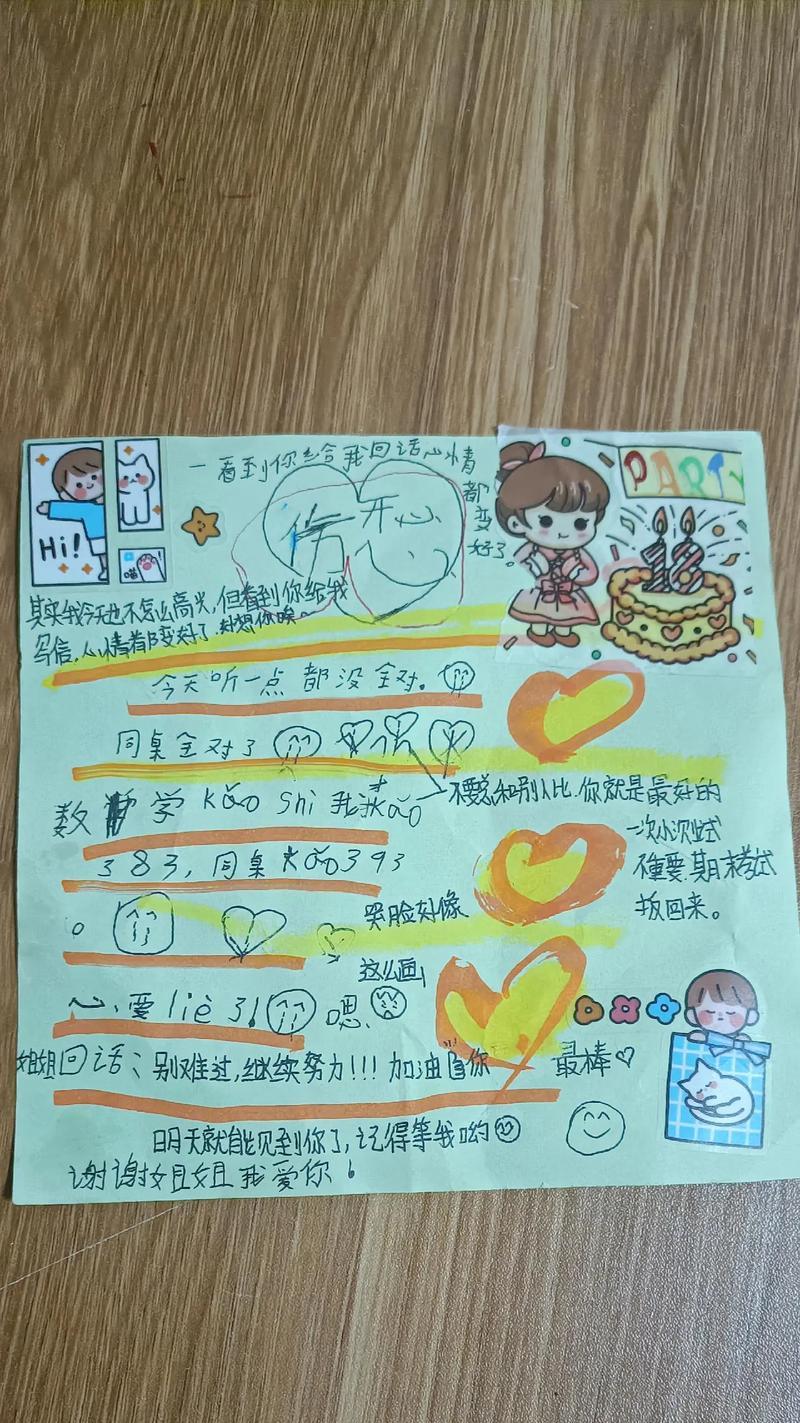 一看到你给我回话心情
都变
好了。
伤 开心
心
Hi!
喵
PARTY
18
其实我今天也不怎么高兴,但看到你给我
写信,心情都变好了.好想你唉。
今天听一点都没全对。
同桌全对了
不要总和别人比.你就是最好的
一次小测试
不重要,期末考试
扳回来。
数学kǎo shi 我kǎo
383,同桌kǎo393
。
哭脸好像
这么画
心要liè了!嗯.
姐姐回话:别难过,继续努力!!!加油你
最棒♡
明天就能见到你了,记得等我呦
谢谢姐姐我爱你!